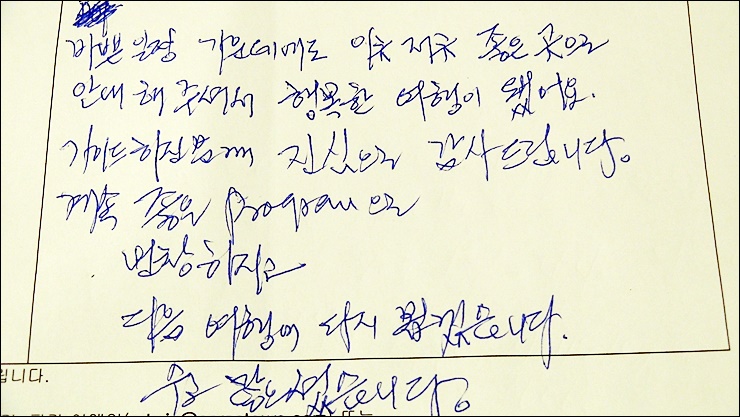 바쁜 일정 가운데에도 이곳 저곳 좋은 곳으로
안내해 주셔서 행복한 여행이 됐어요.
가이드하신분께 진심으로 감사드립니다.
계속 좋은 program으로
번창하시고
다음 여행에 다시 뵙겠습니다.
수고 많으셨습니다.
립니다.